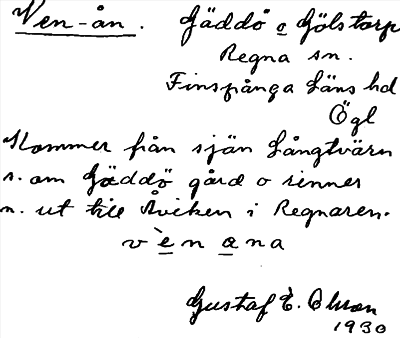 Ven-ån. Gäddö o Gölstorp
Regna sn.
Finspånga Läns hd
Ögl
Kommer från sjön Långtvärn
s. om Gäddö gård o rinner
n. ut till Aviken i Regnaren.
v`enana
Gustaf E. Olsson
1930